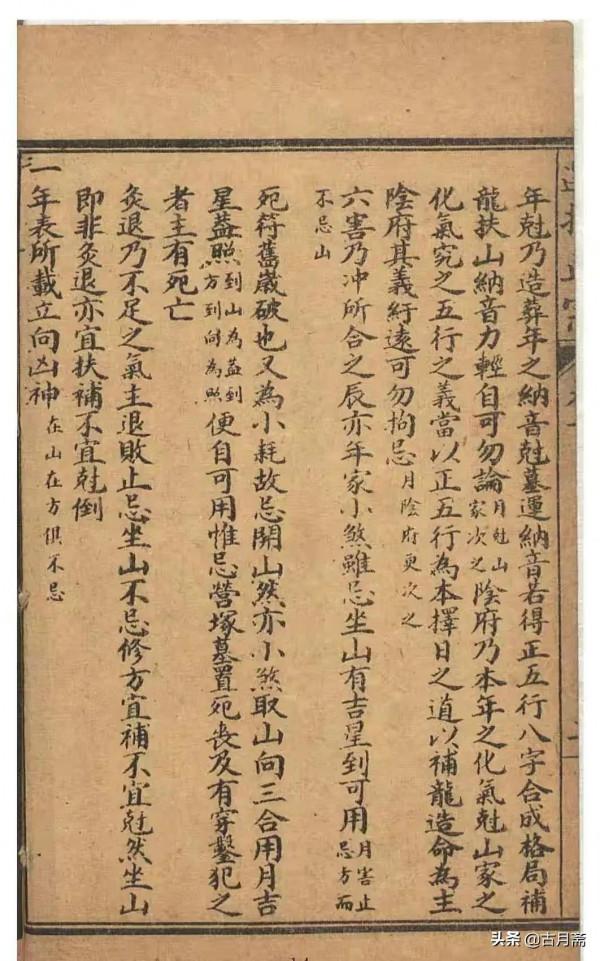 年尅乃造葬年之納音尅墓運納音若得正五行八字合成格局補
龍扶山納音力輕自可勿論月尅山家次之陰府乃本年之化氣尅山家之
化氣究之五行之義當以正五行為本擇日之道以補龍造命為主
陰府其義紆遠可勿拘忌月陰府更次之
六害乃冲所合之辰亦年家小煞雖忌坐山有吉星到可用月害止忌方而
不忌山
死符舊嵗破也又為小耗故忌開山然亦小煞取山向三合用月吉
星葢照到山為葢到方到向為照便自可用惟忌營塚墓置死喪及有穿鑿犯之
者主有死亡
灸退乃不足之氣主退敗止忌坐山不忌修方宜補不宜尅然坐山
即非灸退亦宜扶補不宜尅倒
一年表所載立向凶神在山在方俱不忌
头条 @古月斋